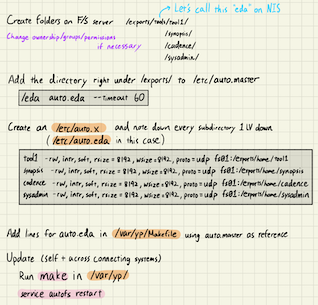 Let's call this "eda" on NIS
Create folders on F/S server /exports/tools/tool1/
/synopsis/
/cadence/
/sysadmin/
Change ownership/groups/permissions
if necessary
Add the directory right under /exports/ to /etc/auto.master
/eda auto.eda --timeout 60
Create an /etc/auto.x and note down every subdirectory 1 LV down
(/etc/auto.eda in this case)
tool1 -rw, intr, soft, rsize=8192, wsize=8192, proto=udp fs01:/export/home/tool1
synopsis -rw, intr, soft, rsize=8192, wsize=8192, proto=udp fs01:/export/home/synopsis
cadence -rw, intr, soft, rsize=8192, wsize=8192, proto=udp fs01:/export/home/cadence
sysadmin -rw, intr, soft, rsize=8192, wsize=8192, proto=udp fs01:/export/home/sysadmin
Add lines for auto.eda in /var/yp/Makefile using auto.master as reference
Update (self + across connecting systems)
Run make in /var/yp/
service autofs restart